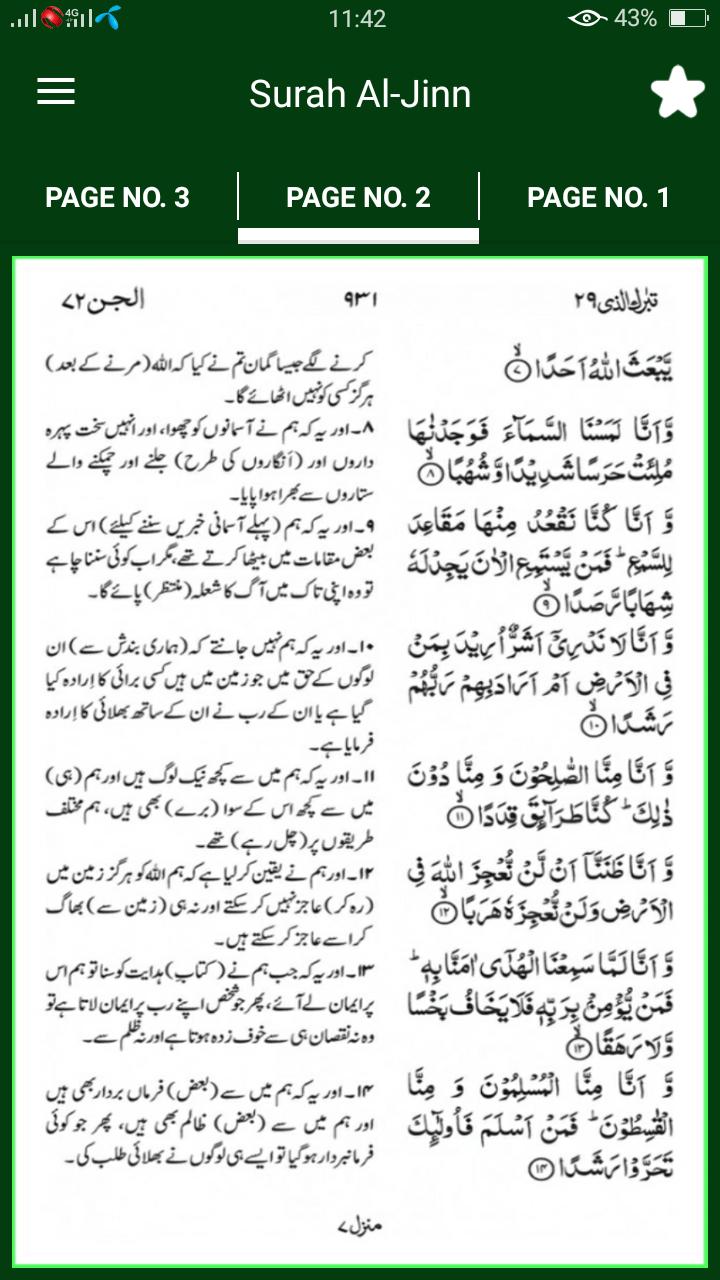 4G 11:42 43%
Surah Al-Jinn
PAGE NO. 3 PAGE NO. 2 PAGE NO. 1
تبٰرك الذی ۲۹ ۹۳۱ الجن ۷۲
یَّبْعَثَ اللّٰهُ اَحَدًا ۷
وَّ اَنَّا لَمَسْنَا السَّمَآءَ فَوَجَدْنٰهَا
مُلِئَتْ حَرَسًا شَدِیْدًا وَّ شُهُبًا ۸
وَّ اَنَّا كُنَّا نَقْعُدُ مِنْهَا مَقَاعِدَ
لِلسَّمْعِ ؕ فَمَنْ یَّسْتَمِعِ الْاٰنَ یَجِدْ لَهٗ
شِهَابًا رَّصَدًا ۹
وَّ اَنَّا لَا نَدْرِیْۤ اَشَرٌّ اُرِیْدَ بِمَنْ
فِی الْاَرْضِ اَمْ اَرَادَ بِهِمْ رَبُّهُمْ
رَشَدًا ۱۰
وَّ اَنَّا مِنَّا الصّٰلِحُوْنَ وَ مِنَّا دُوْنَ
ذٰلِكَ ؕ كُنَّا طَرَآىِٕقَ قِدَدًا ۱۱
وَّ اَنَّا ظَنَنَّاۤ اَنْ لَّنْ نُّعْجِزَ اللّٰهَ فِی
الْاَرْضِ وَ لَنْ نُّعْجِزَهٗ هَرَبًا ۱۲
وَّ اَنَّا لَمَّا سَمِعْنَا الْهُدٰۤى اٰمَنَّا بِهٖ ؕ
فَمَنْ یُّؤْمِنْۢ بِرَبِّهٖ فَلَا یَخَافُ بَخْسًا
وَّ لَا رَهَقًا ۱۳
وَّ اَنَّا مِنَّا الْمُسْلِمُوْنَ وَ مِنَّا
الْقٰسِطُوْنَ ؕ فَمَنْ اَسْلَمَ فَاُولٰٓىِٕكَ
تَحَرَّوْا رَشَدًا ۱۴
کرنے لگے جیسا گمان تم نے کیا کہ اللہ (مرنے کے بعد)
ہرگز کسی کو نہیں اٹھائے گا۔
۸۔ اور یہ کہ ہم نے آسمانوں کو چھوا، اور انہیں سخت پہرہ
داروں اور (انگاروں کی طرح) جلنے اور چمکنے والے
ستاروں سے بھرا ہوا پایا۔
۹۔ اور یہ کہ ہم (پہلے آسمانی خبریں سننے کیلئے) اس کے
بعض مقامات میں بیٹھا کرتے تھے، مگر اب کوئی سننا چاہے
تو وہ اپنی تاک میں آگ کا شعلہ (منتظر) پائے گا۔
۱۰۔ اور یہ کہ ہم نہیں جانتے کہ (ہماری بندش سے) ان
لوگوں کے حق میں جو زمین میں ہیں کسی برائی کا اِرادہ کیا
گیا ہے یا ان کے رب نے ان کے ساتھ بھلائی کا اِرادہ
فرمایا ہے۔
۱۱۔ اور یہ کہ ہم میں سے کچھ نیک لوگ ہیں اور ہم (ہی)
میں سے کچھ اس کے سوا (برے) بھی ہیں، ہم مختلف
طریقوں پر (چل رہے) تھے۔
۱۲۔ اور ہم نے یقین کر لیا ہے کہ ہم اللہ کو ہرگز زمین میں
(رہ کر) عاجز نہیں کر سکتے اور نہ ہی (زمین سے) بھاگ
کر اسے عاجز کر سکتے ہیں۔
۱۳۔ اور یہ کہ جب ہم نے (کتابِ) ہدایت کو سنا تو ہم اس
پر ایمان لے آئے، پھر جو شخص اپنے رب پر ایمان لاتا ہے تو
وہ نہ نقصان ہی سے خوف زدہ ہوتا ہے اور نہ ظلم سے۔
۱۴۔ اور یہ کہ ہم میں سے (بعض) فرماں بردار بھی ہیں
اور ہم میں سے (بعض) ظالم بھی ہیں، پھر جو کوئی
فرمانبردار ہو گیا تو ایسے ہی لوگوں نے بھلائی طلب کی۔
منزل ۷